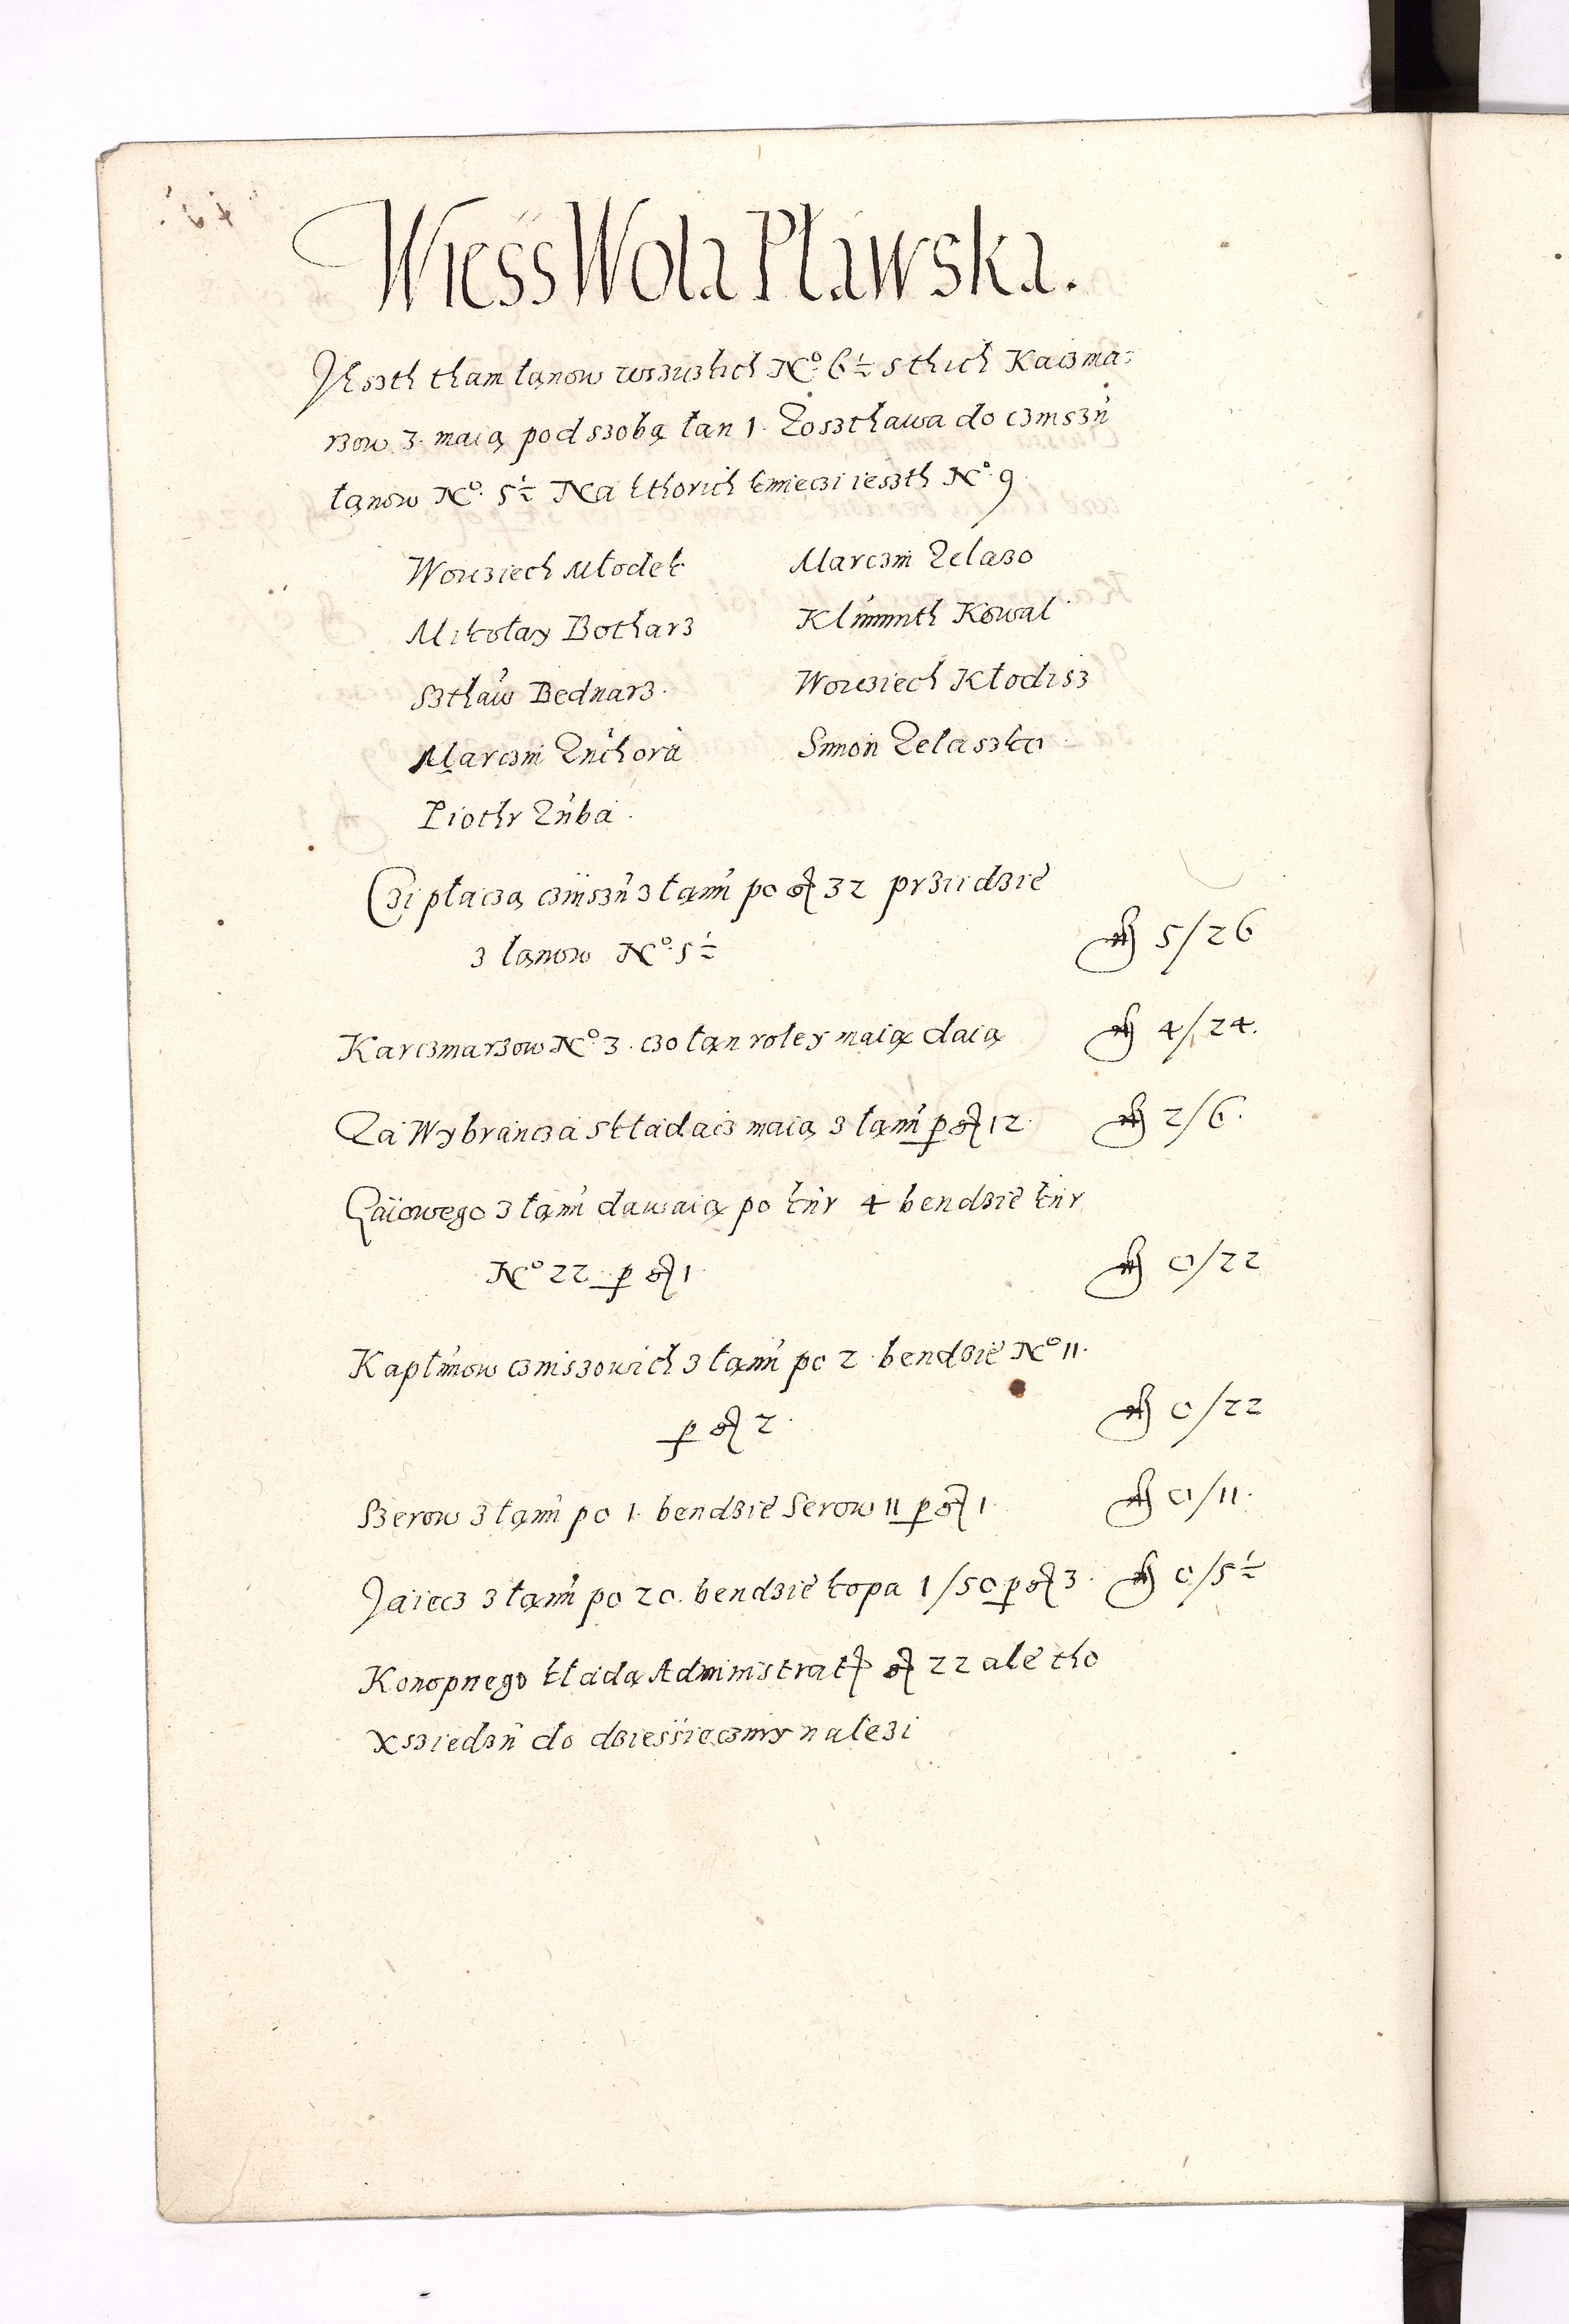 Wiess Wola Pławska.
Jeszth tham łanow wszistkich No 6½ s thich Kaczma:
rzow 3. maią pod szobą łan 1. Zoszthawa do czinszu
łanow No. 5½ Na kthorich kmieczi ieszth No. 9
Woicziech Młodek
Mikołay Botharz
Szthaw Bednarz.
Marczin Zuchora
Piothr Zuba.
Marczin Zelazo
Klimunth Kowal
Woicziech Kłodisz
Simon Zelaszko
Czi płaczą czinszu z łanu po gr 32 prziidzie
z lanow No. 5½ fl 5/26
Karczmarzow No 3. czo łan roley maią daią fl 4/24.
Za Wybrancza składacz maią z łanu p gr 12 fl 2/6.
Gaiowego z łanu dawaią po kur 4 bendzie kur
No 22 p gr 1 fl 0/22
Kapłunow czinszowich z łanu po 2 bendzie No 11.
p gr 2. fl 0/22
Szerow z łanu po 1. bendzie Serow 11 p gr 1. fl 0/11.
Jaiecz z łanu po 20. bendzie kopa 1/50 p gr 3. fl 0/5½
Konopnego kładą Administrat gr 22 ale tho
Xsziedzu do dziessiecziny nalezi